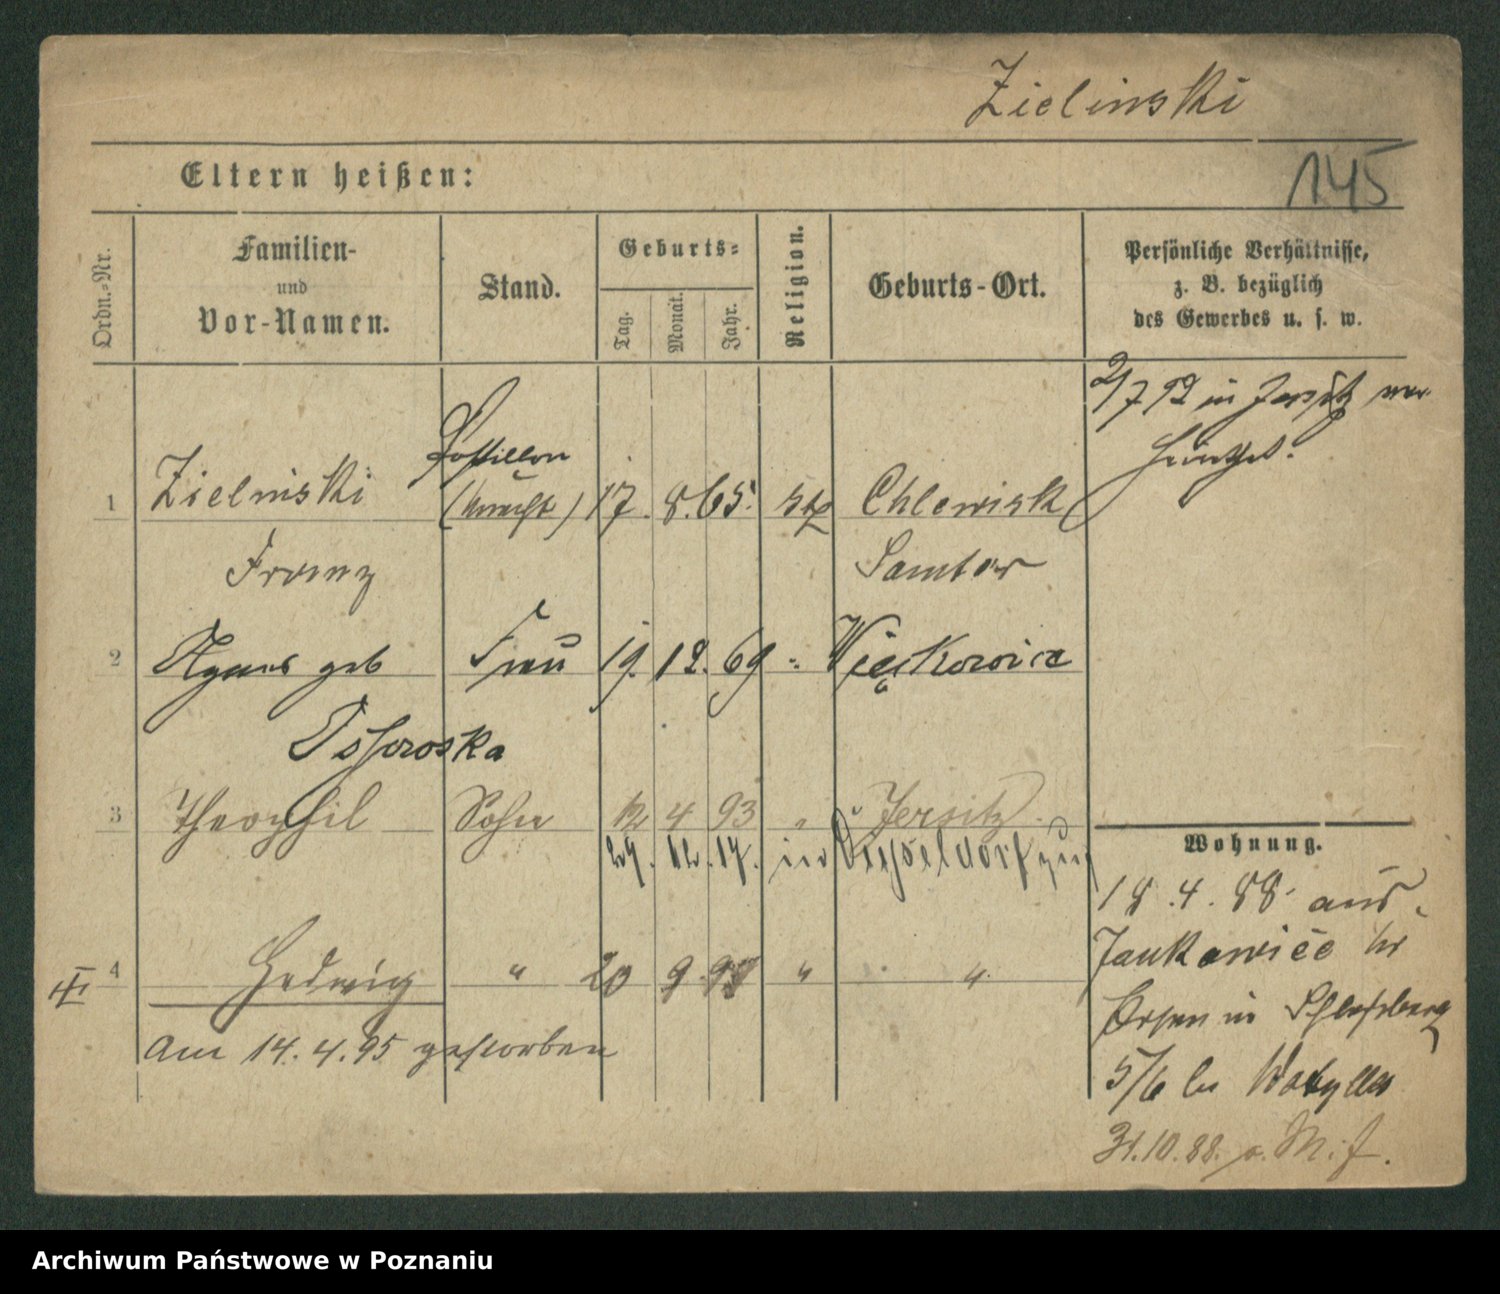 Zielinski
145
Eltern heißen:
Ordn.-Nr.
Familien-
und
Vor-Namen.
Stand.
Geburts-
Tag.
Monat.
Jahr.
Religion.
Geburts-Ort.
Persönliche Verhältnisse,
z. B. bezüglich
des Gewerbes u. s. w.
2/7 92 in Jersitz ver
Postillon
1 Zielinski (Knecht) 17. 8. 65. kth Chlewisk
Franz Samter
2 Agnes geb Frau 19. 12. 69 " Więckowice
3 Theophil Sohn 12 4 93 " Jersitz
24. 12. 17. in Düsseldorf
4 Hedwig " 20 9 " "
Am 14.4.95 gestorben
Wohnung.
18.4.88 aus
Jankowice
in
5/6 bei
31.10.88.